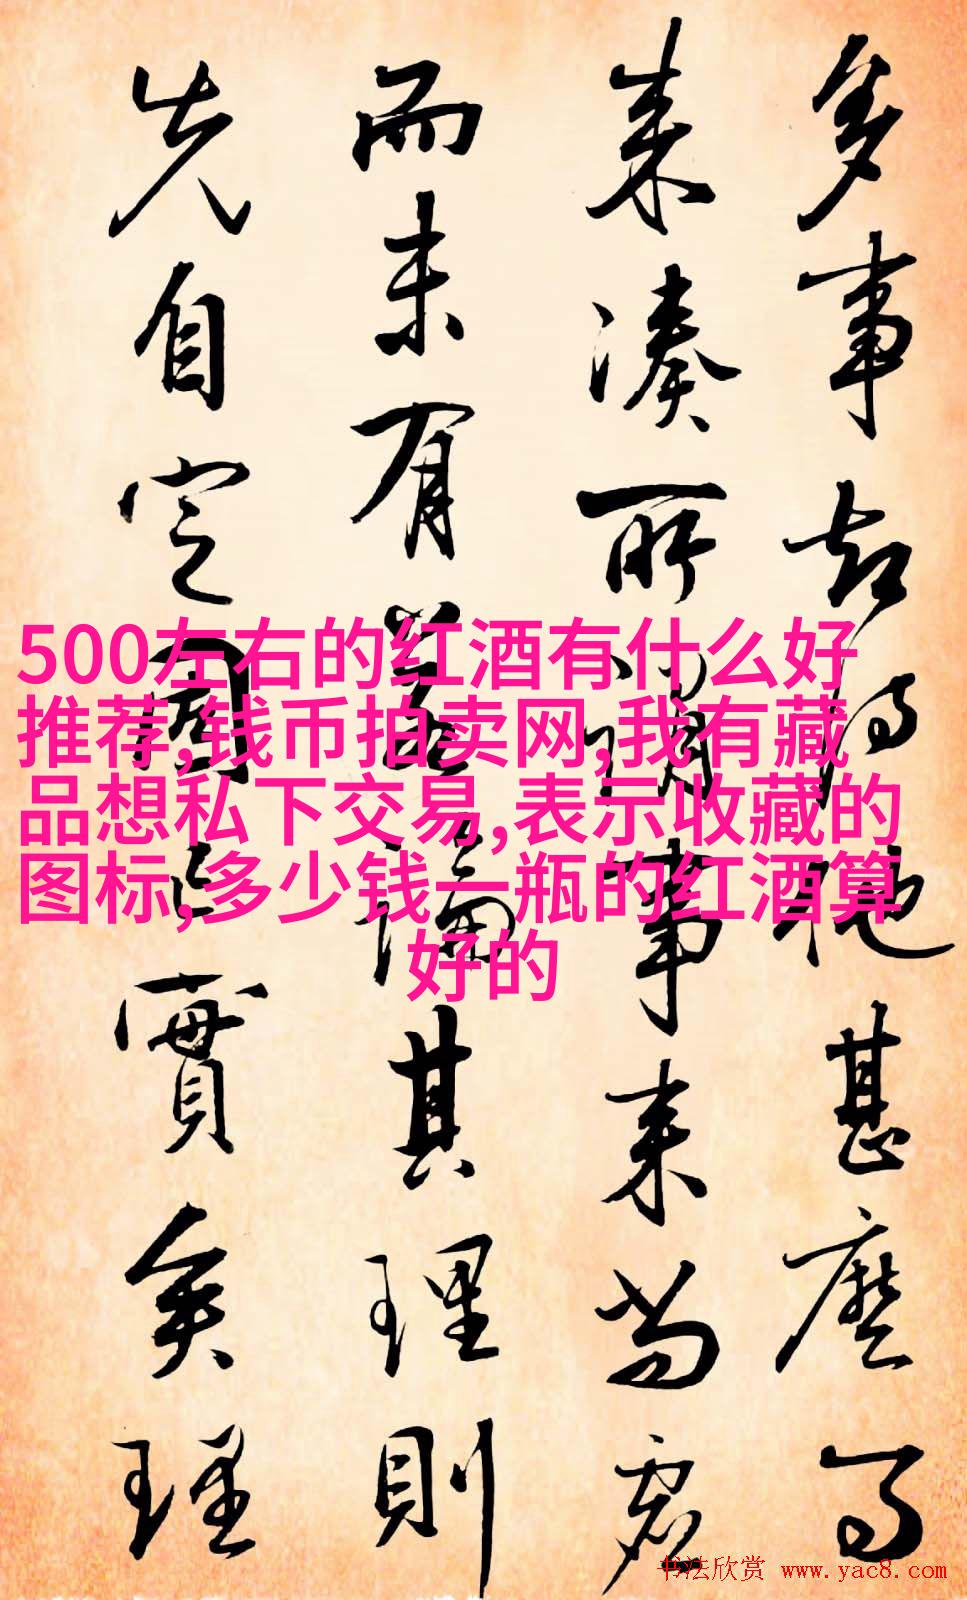 500左右的红酒有什么好
推荐,钱币拍卖网,我有藏
品想私下交易,表示收藏的
图标,多少钱一瓶的红酒算
好的
多事却待他甚麼
来湊所謂事来尚虚
而未有若論其理則
先自定固已實矣理
书法欣赏 www.yac8.com